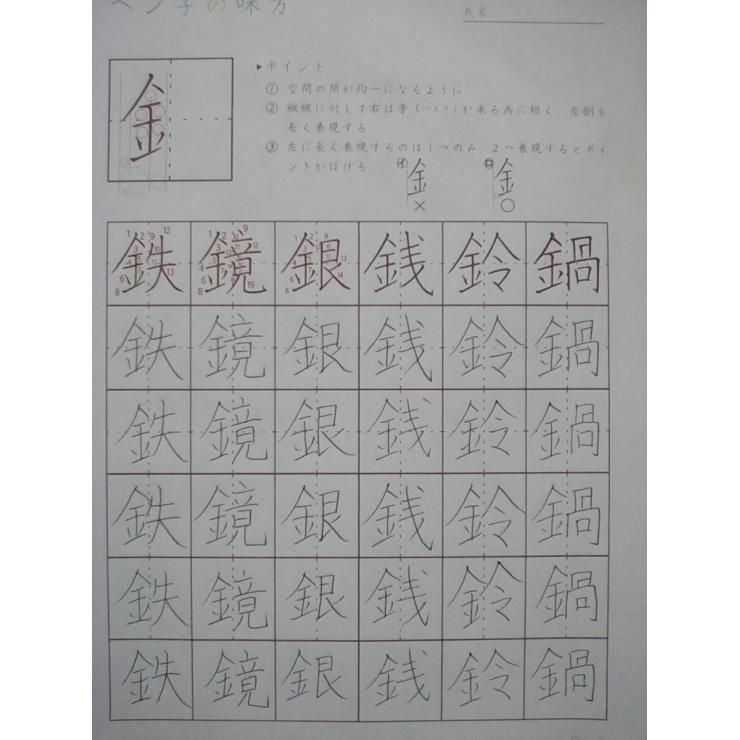 ペン字の味方
氏名
金
▶ポイント
① 空間の間が均一になるように
② 縦線に対して右は旁(つくり)が来る為に短く、左側を
長く表現する
③ 左に長く表現するのは1つのみ、2つ表現するとポイ
ントがぼける
イ 金 ×
ロ 金 ○
鉄 鏡 銀 銭 鈴 鍋
鉄 鏡 銀 銭 鈴 鍋
鉄 鏡 銀 銭 鈴 鍋
鉄 鏡 銀 銭 鈴 鍋
鉄 鏡 銀 銭 鈴 鍋
鉄 鏡 銀 銭 鈴 鍋